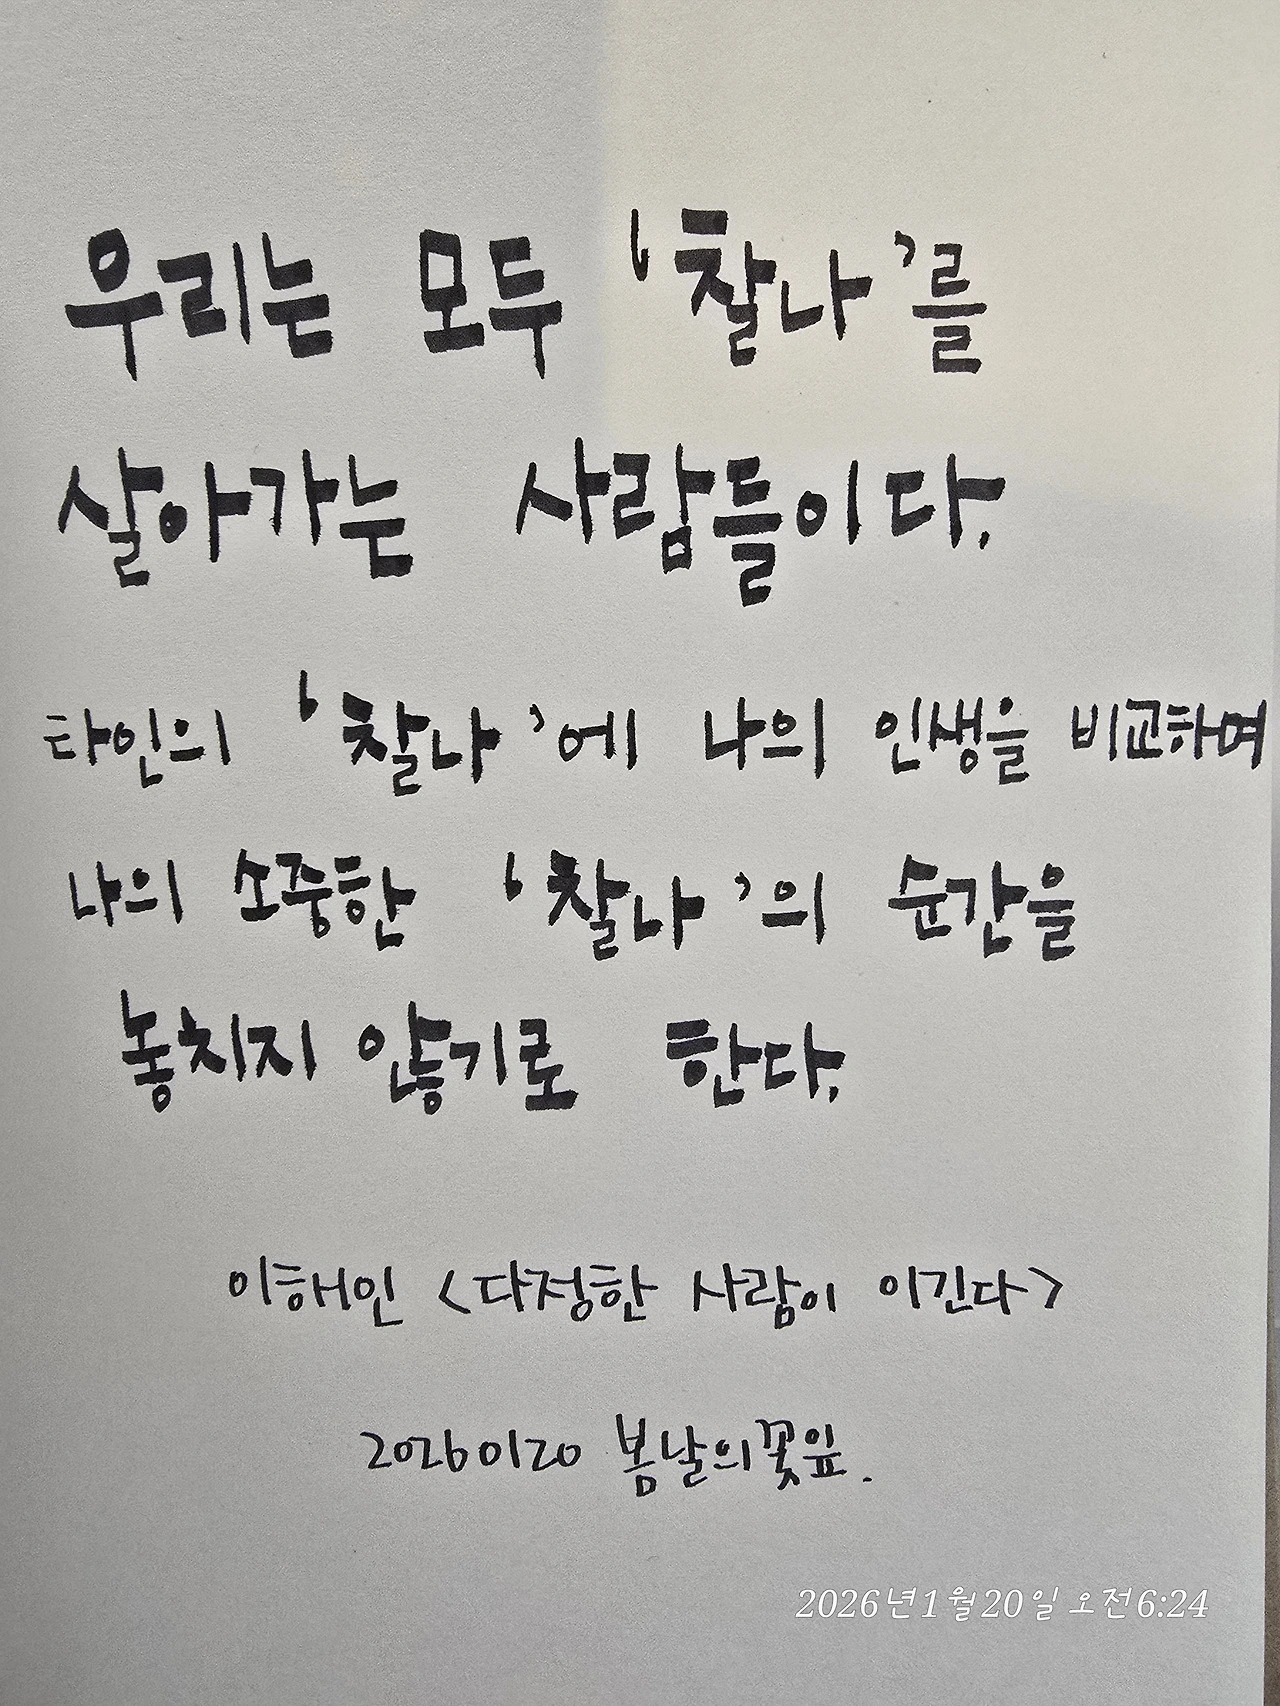 우리는 모두 '찰나'를
살아가는 사람들이다.
타인의 '찰나'에 나의 인생을 비교하며
나의 소중한 '찰나'의 순간을
놓치지 않기로 한다.
이해인 <다정한 사람이 이긴다>
20260120 봄날의꽃잎.
2026년 1월 20일 오전 6:24